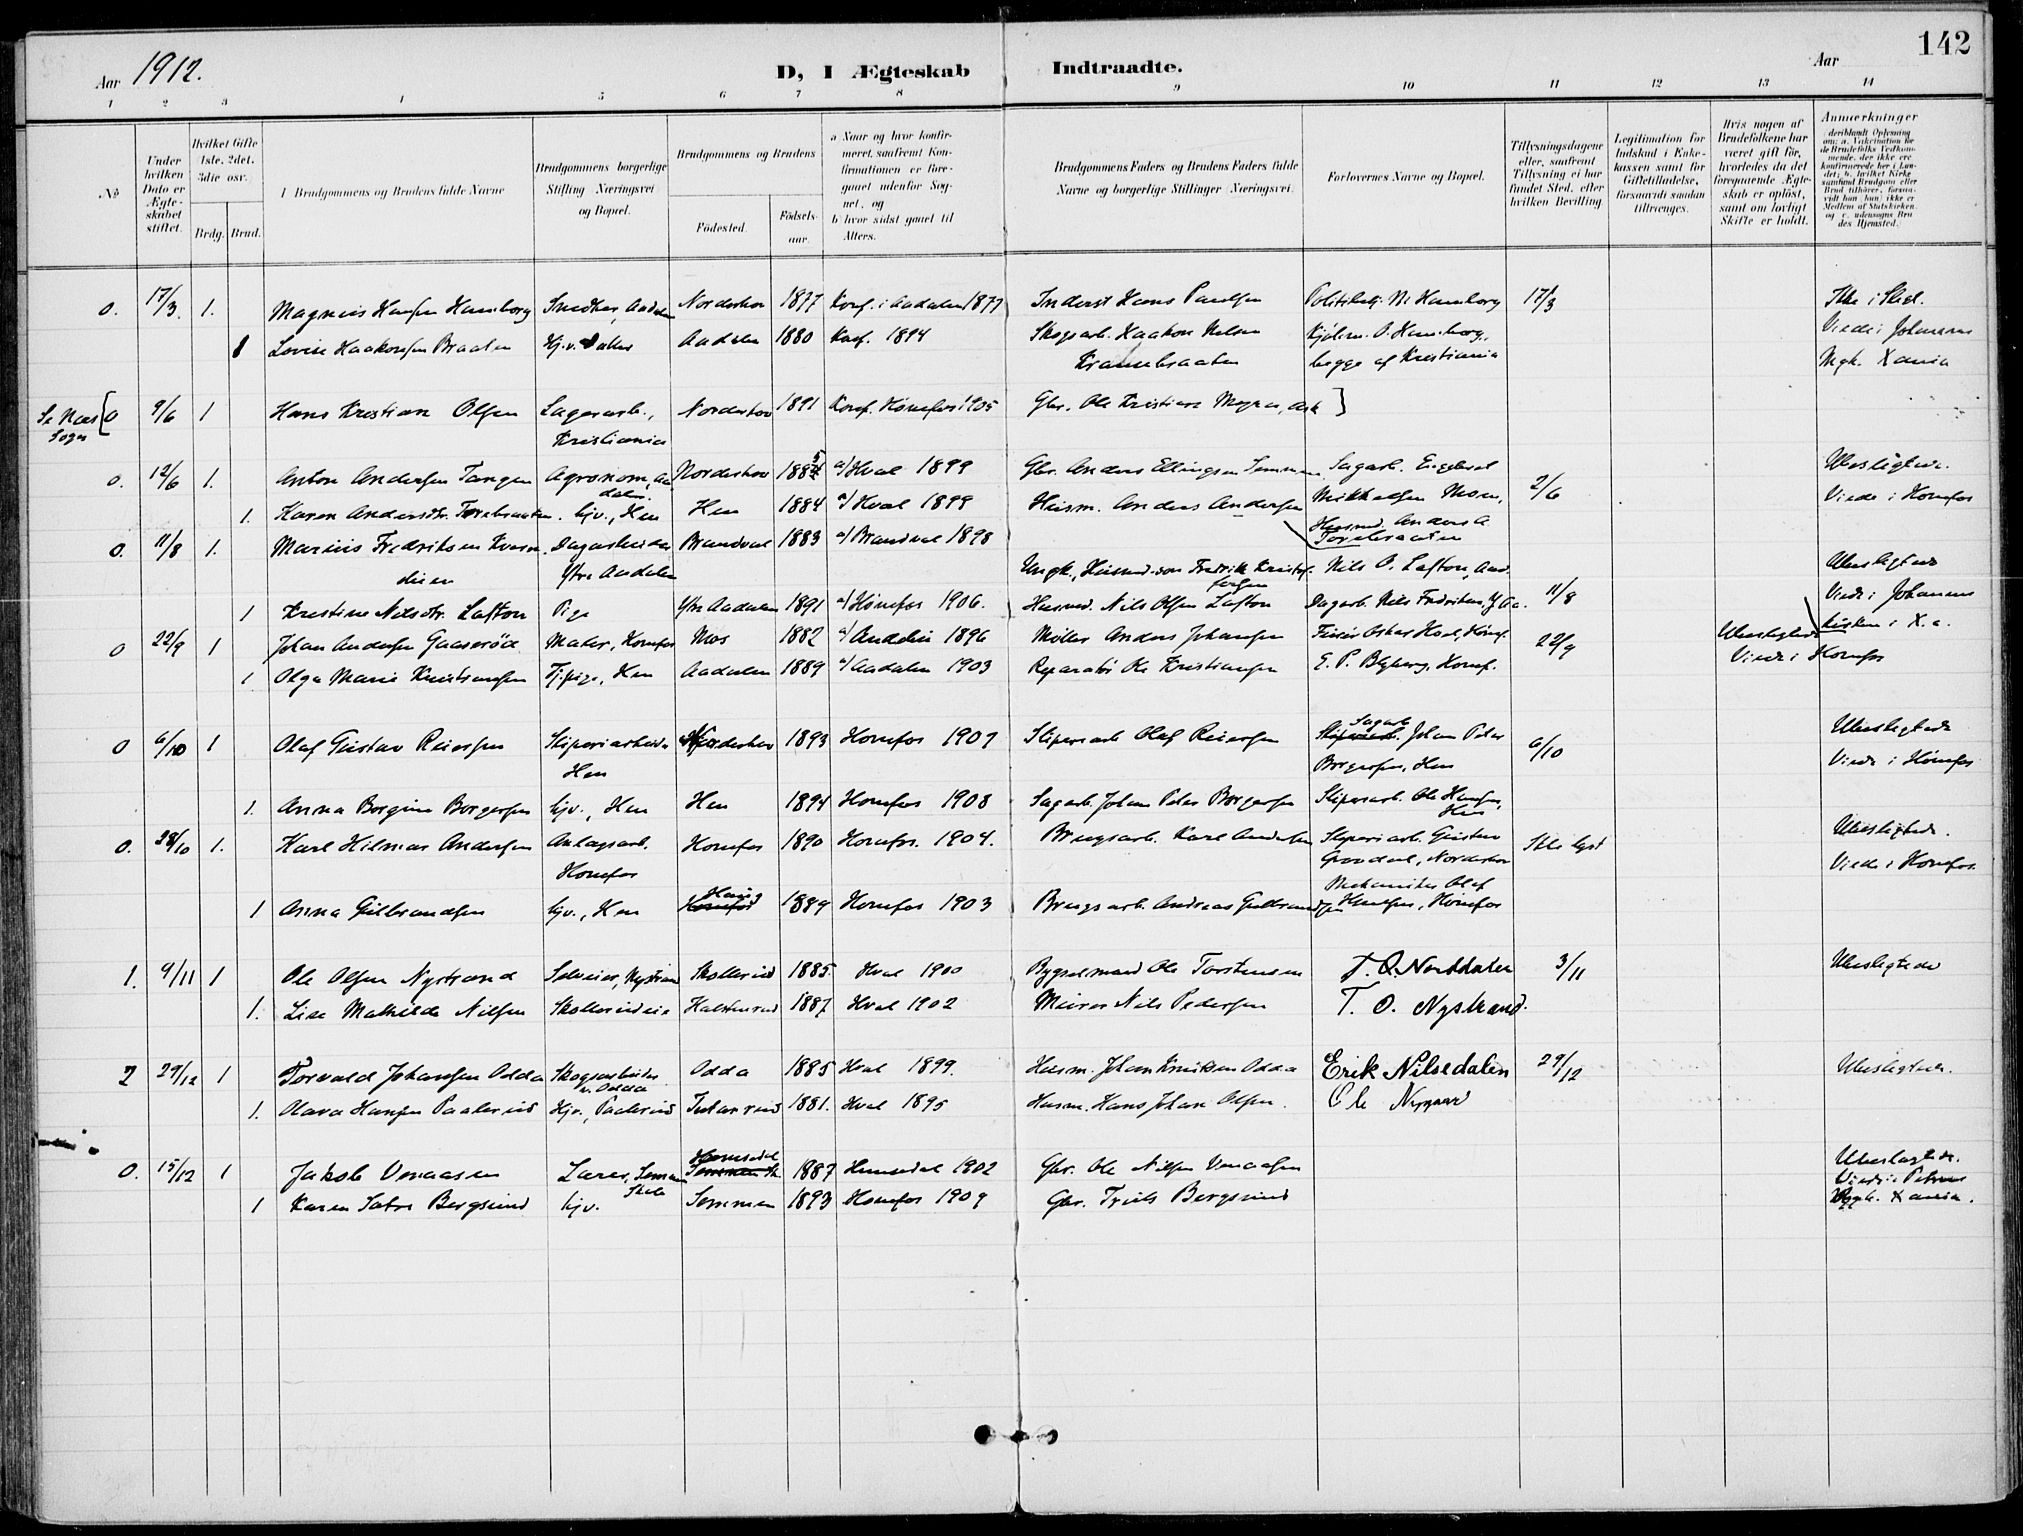 142
Aar 1912.
D, I Ægteskab Indtraadte.
Aar
1 2 3 4 5 6 7 8 9 10 11 12 13 14
No
Under hvilken Dato er Ægteskabet stiftet.
Hvilket Gifte 1ste. 2det. 3die osv.
Brdg. Brud.
Brudgommens og Brudens fulde Navne
Brudgommens borgerlige Stilling Næringsvei og Bopæl.
Brudgommens og Brudens
Födested.
Födsels-aar.
a Naar og hvor konfirmeret, saafremt Konfirmationen er foregaaet udenfor Sognet, og
b hvor sidst gaaet til Alters.
Brudgommens Faders og Brudens Faders fulde Navne og borgerlige Stillinger Næringsvei.
Forlovernes Navne og Bopæl.
Tillysningsdagene eller, saafremt Tillysning ei har fundet Sted, efter hvilken Bevilling.
Legitimation for Indskud i Enkekassen samt for Giftetilladelse, forsaavidt saadan tiltrænges.
Hvis nogen af Brudefolkene har været gift för, hvorledes da det foregaaende Ægteskab er oplöst, samt om lovligt Skifte er holdt.
Anmærkninger
0. 17/3. 1. Magnus Hansen Hamborg Snedker, Aadalen Norderhov 1877 Konf. i Aadalen 1877 Inderst Hans Paulsen 17/3 Ikke i Slegt.
1 Lovise Haakonsen Braaten Hj.v. Aadalen 1880 Konf. 1894 Skogsarb. Haakon Nelsen Viede i Johannes
begge af Kristiania Mgh. Xania
Se Næs Sogn 0 9/6 1 Hans Kristian Olsen Lagerarb., Norderhov 1891 Konf. Hønefos 1905 Gbr. Ole Kristian Mognes, Ask
Kristiania
0. 12/6 1. Anton Andersen Tangen Agronom, Aadalen Norderhov 1885 a/ Hval 1899 Gbr. Anders Ellingsen Semmen Sagarb. Engebret Ubeslegtede.
1. Karen Andersdtr. Torebraaten hjv., Hen Hen 1884 a/ Hval 1899 Husm. Anders Andersen Mikkelsen Moen, 2/6 Viede i Hønefos
Husmd. Anders A. Torebraaten
0. 11/8 1. Marius Fredriksen Dagarbeider Brandval 1883 a/ Brandval 1898
Ytre Aadalen Ungk., Husmd.-søn Fredrik Kristofersen Nils O. Lafton, Aad. Ubeslegtede
1 Kristine Nilsdtr. Lafton Pige Ytre Aadalen 1891 a/ Hønefos 1906. Husmd. Nils Olsen Lafton Dagarb. Nils Fredriksen, Y. Aa. 11/8 Viede i Johannes
kirken i X.a.
0 22/9 1 Johan Andersen Gaaserød Maler, Hønefos Næs 1882 1896 Møller Anders Johansen 22/9 Ubeslegtede
1 Olga Marie Kristiansen Tj.pige, Hen Aadalen 1889 a/ Aadalen 1903 Reparatør Ole Kristiansen E. P. Byberg, Honef. Viede i Honefos
0 6/10 1 Olaf Gustav Reiersen Sliperiarbeider Norderhov 1893 Honefos 1907 Sliperiarb Olaf Reiersen Sagarb. Johan Peter 6/10 Ubeslegtede
Hen Borgersen, Hen Viede i Hønefos
1. Anna Borgine Borgersen hjv., Hen Hen 1894 Honefos 1908 Sagarb. Johan Peter Borgersen Sliperiarb. Ole Hansen, Hen
0. 28/10 1. Karl Hilmar Andersen Anlægsarb. Honefos 1890 Honefos. 1904. Brugsarb. Karl Andersen Sliperiarb. Gustav Ikke lyst Ubeslegtede.
Honefos Norderhov Viede i Honefos.
1 Anna Gulbrandsen hjv., Hen Haug 1889 Honefos 1903 Brugsarb. Andreas Gulbrandsen Mekaniker Olaf Hansen, Hønefos
1. 9/11 1 Ole Olsen Nystrand Selveier, Nystrand Skollerud 1885. Hval 1900 Bygselmand Ole Torstensen T. O. Norddalen 3/11 Ubeslegtede
1. Lise Mathilde Nilsen Skollerudeie Halstenrud 1887 Hval 1902 Murer Nils Pedersen T. O. Nystrand.
2 29/12 1 Torvald Johansen Odda Skogsarbeider v. Odda Odda 1885 Hval 1899. Husm. Johan Knutsen Odda Erik Nilsedalen 29/12 Ubeslegtede.
1. Olava Hansen Paalerud Hjv., Paalerud 1881. Hval 1895 Husm. Hans Johan Olsen Ole Nygaard
0. 15/12 1 Jakob Venaasen Lærer, Semmen Skole Hemsedal 1887 Hemsedal 1902 Gbr. Ole Nilsen Venaasen Ubeslegtede.
1 Karen Sætre Bergsund hjv. Semmen 1893 Honefos 1909 Gbr. Truls Bergsund Viede i Petrus
Mgh. Xania.